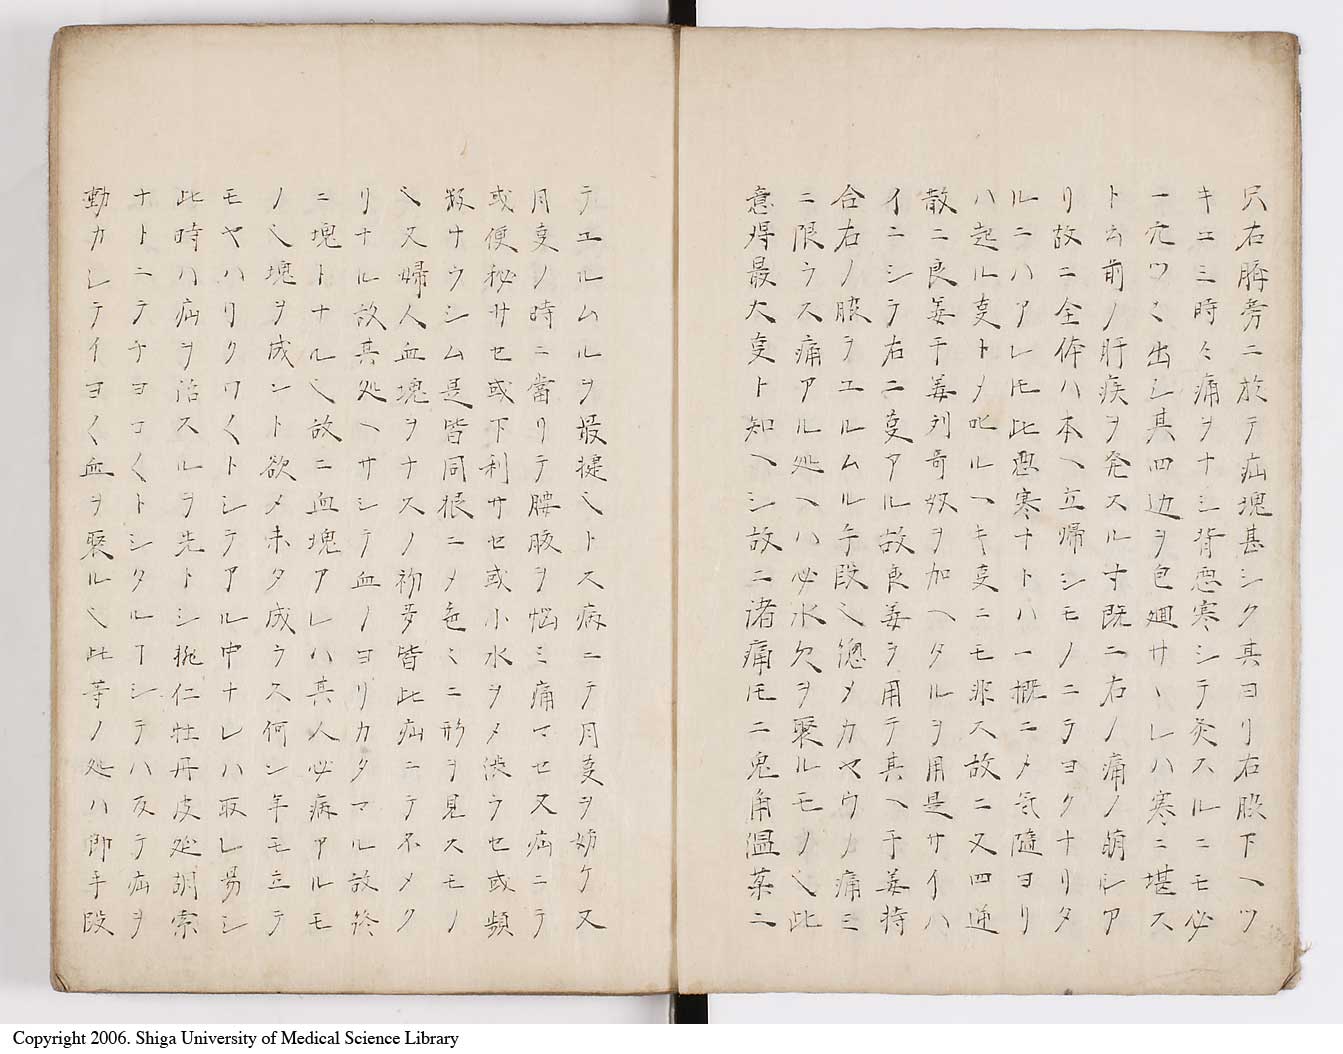 只右臍旁ニ於テ疝塊甚シク其ヨリ右股下ヘツ
キコミ時々痛ヲナシ背悪寒シテ灸スルニモ必
一穴ツヽ出シ其四辺ヲ包廻サヽレハ寒ニ堪ス
ト云前ノ肝疾ヲ発スル寸既ニ右ノ痛ノ萠シア
リ故ニ全体ハ本ヘ立帰シモノニテヨクナリタ
ルニハアレ𪜈此悪寒ナトハ一概ニメ気随ヨリ
ハ起ル叓トメ叱ルヘキ叓ニモ非ス故ニ又四逆
散ニ良姜干姜列奇奴ヲ加ヘタルヲ用是サイハ
イニシテ右ニ叓アル故良姜ヲ用テ其ヘ干姜持
合右ノ腹ヲエルムル手段ヘ総メカマウカ痛ミ
ニ限ラス痛アル処ヘハ必水欠ヲ聚ルモノヘ此
意得最大叓ト知ヘシ故ニ諸痛𪜈ニ鬼角温薬ニ
テエルムルヲ最捷ヘトス病ニテ月叓ヲ妨ケ又
月叓ノ時ニ當リテ腰腹ヲ悩ミ痛マセ又疝ニテ
或便秘サセ或下利サセ或小水ヲメ渋ラセ或頻
数ナラシム是皆同根ニメ色々ニ形ヲ見スモノ
ヘ又婦人血塊ヲナスノ初夛皆此疝ニテネメク
リナル故其処ヘサシテ血ノヨリカタマル故終
ニ塊トナルヘ故ニ血塊アレハ其人必病アルモ
ノヘ塊ヲ成ント欲メ未タ成ラス何ン年モ立テ
モヤハリクワくトシテアル中ナレハ取レ昜シ
此時ハ疝ヲ治スルヲ先トシ桃仁牡丹皮延胡索
ナトニテチヨコくトシタルヿシテハ反テ疝ヲ
動カレテイヨく血ヲ聚ルヘ此等ノ処ハ即手段